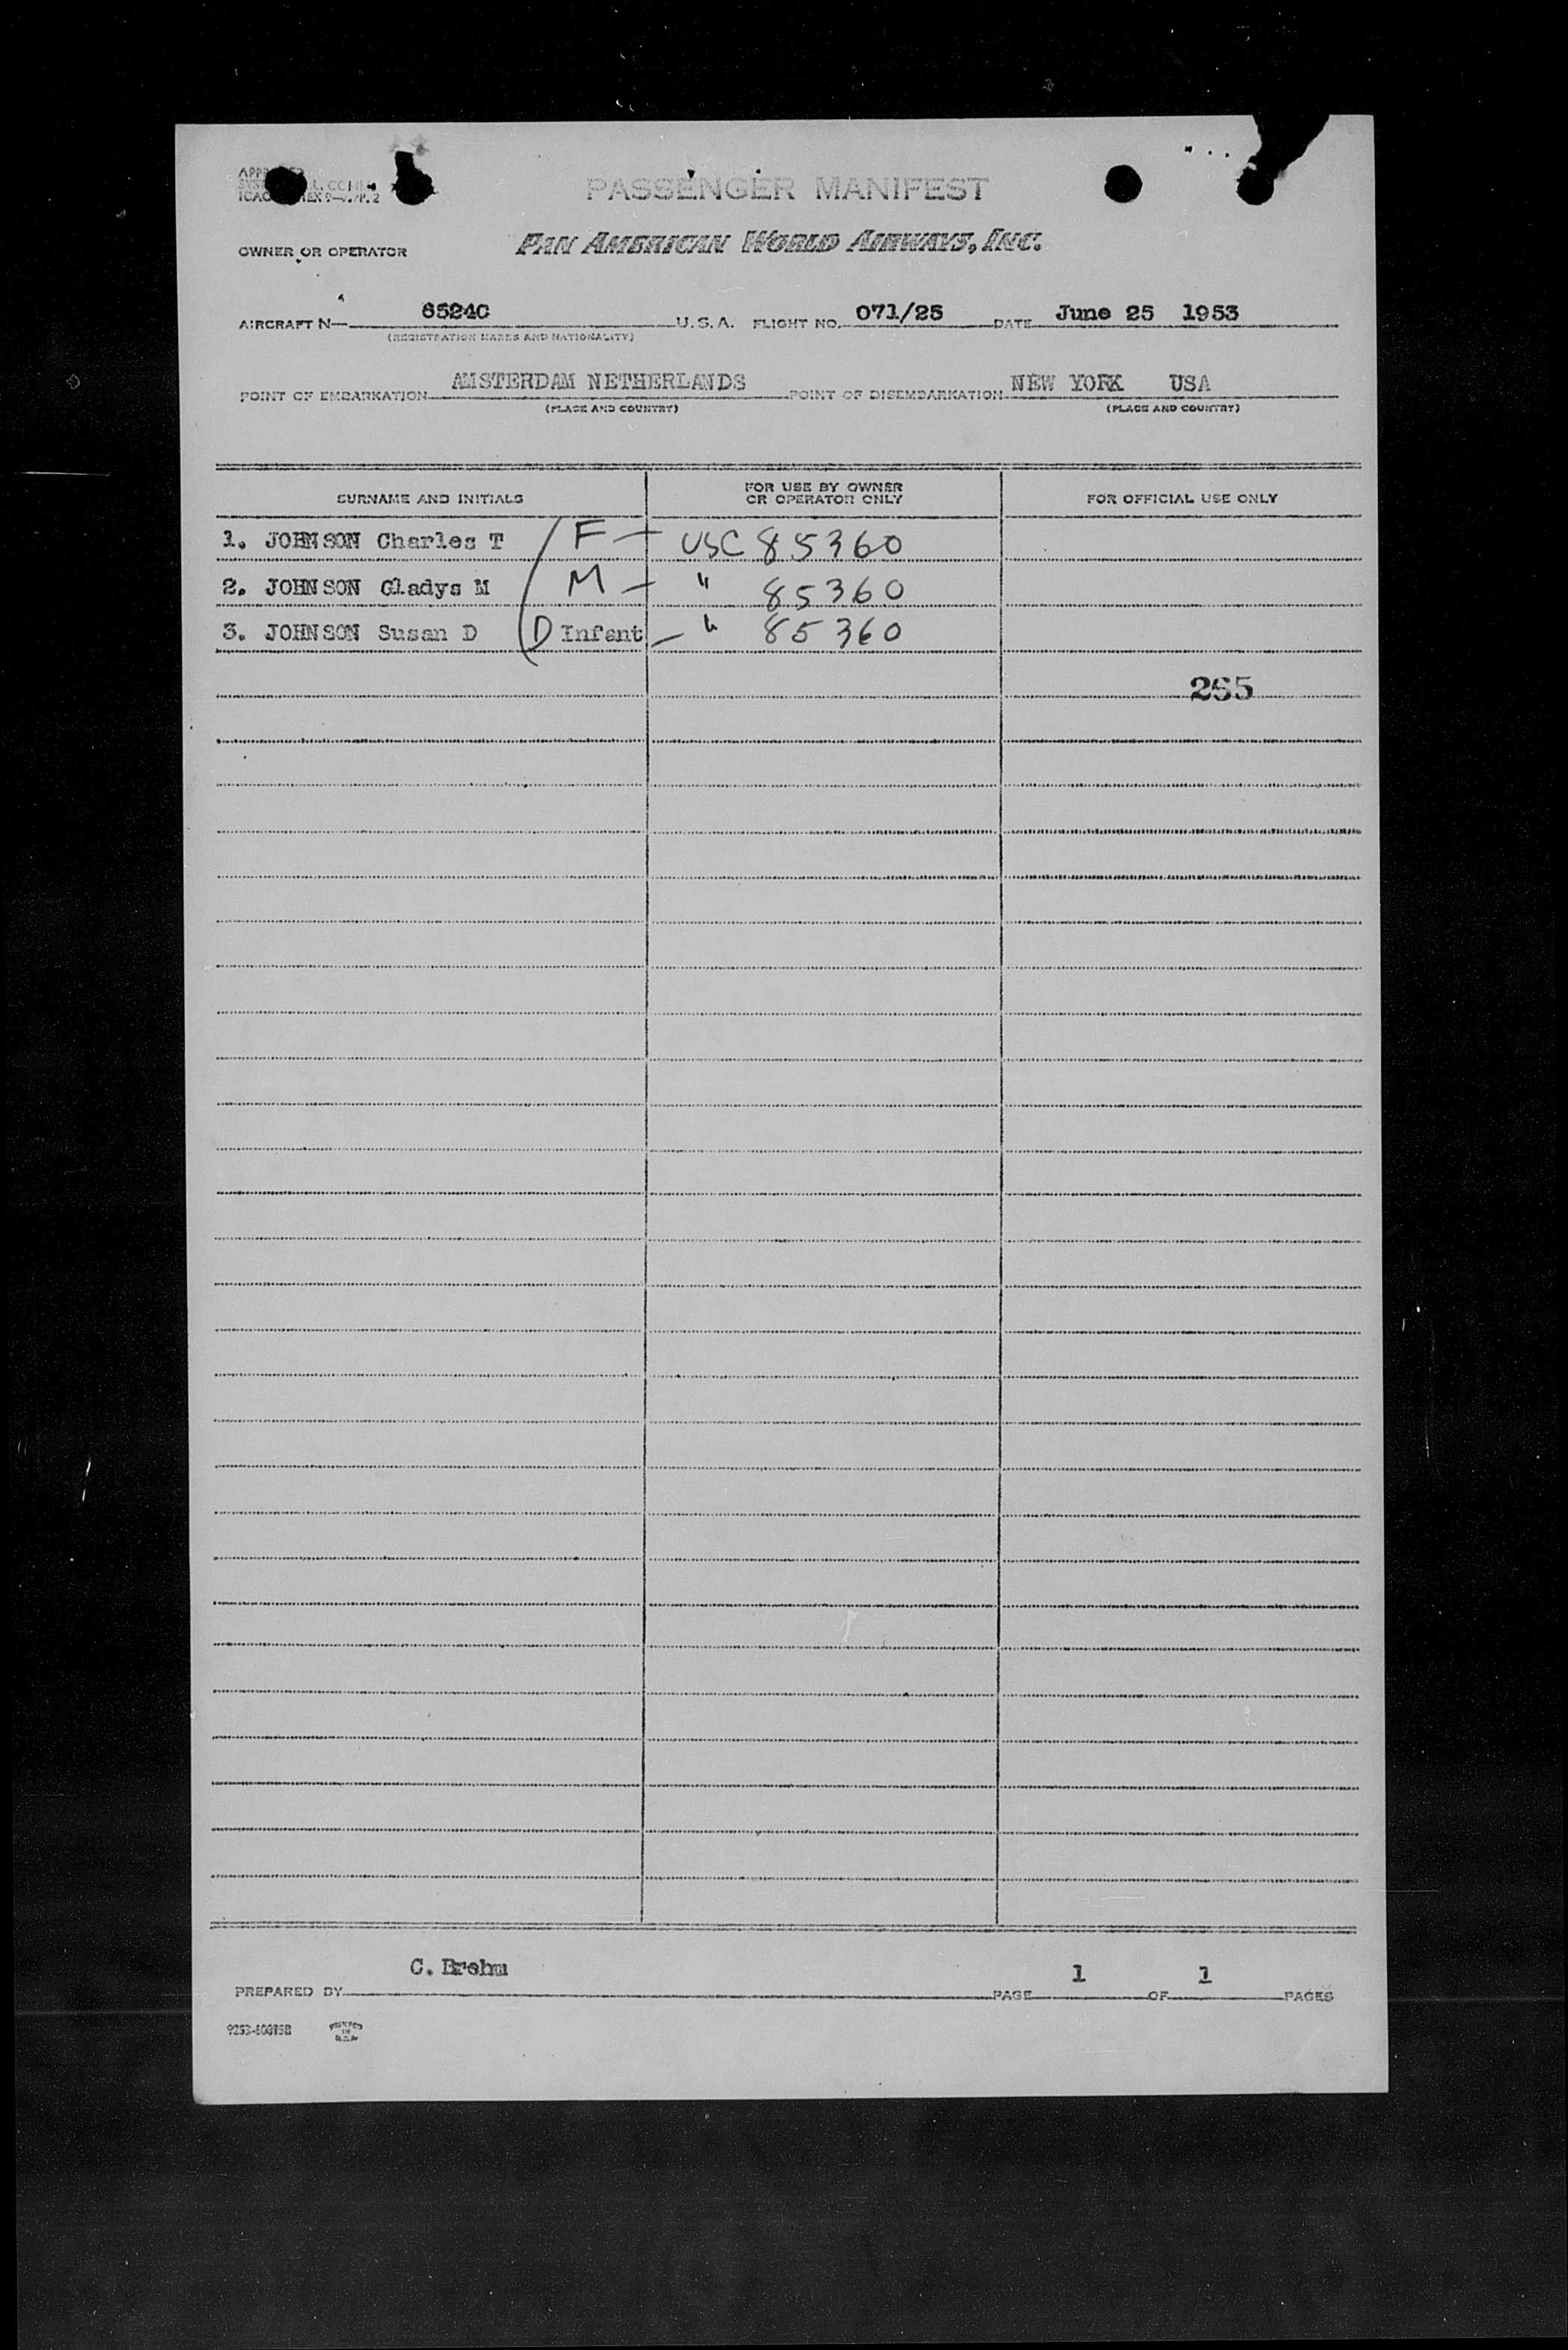 PASSENGER MANIFEST
OWNER OR OPERATOR
PAN AMERICAN WORLD AIRWAYS, INC.
AIRCRAFT N— 6524C U.S.A. FLIGHT NO. 071/25 DATE June 25 1953
(REGISTRATION MARKS AND NATIONALITY)
POINT OF EMBARKATION AMSTERDAM NETHERLANDS POINT OF DISEMBARKATION NEW YORK USA
(PLACE AND COUNTRY) (PLACE AND COUNTRY)
SURNAME AND INITIALS FOR USE BY OWNER OR OPERATOR ONLY FOR OFFICIAL USE ONLY
1. JOHNSON Charles T F — USC 85360
2. JOHNSON Gladys M M — " 85360
3. JOHNSON Susan D D Infant — " 85360
265
PREPARED BY C. Brehm PAGE 1 OF 1 PAGES
PRINTED IN U.S.A.